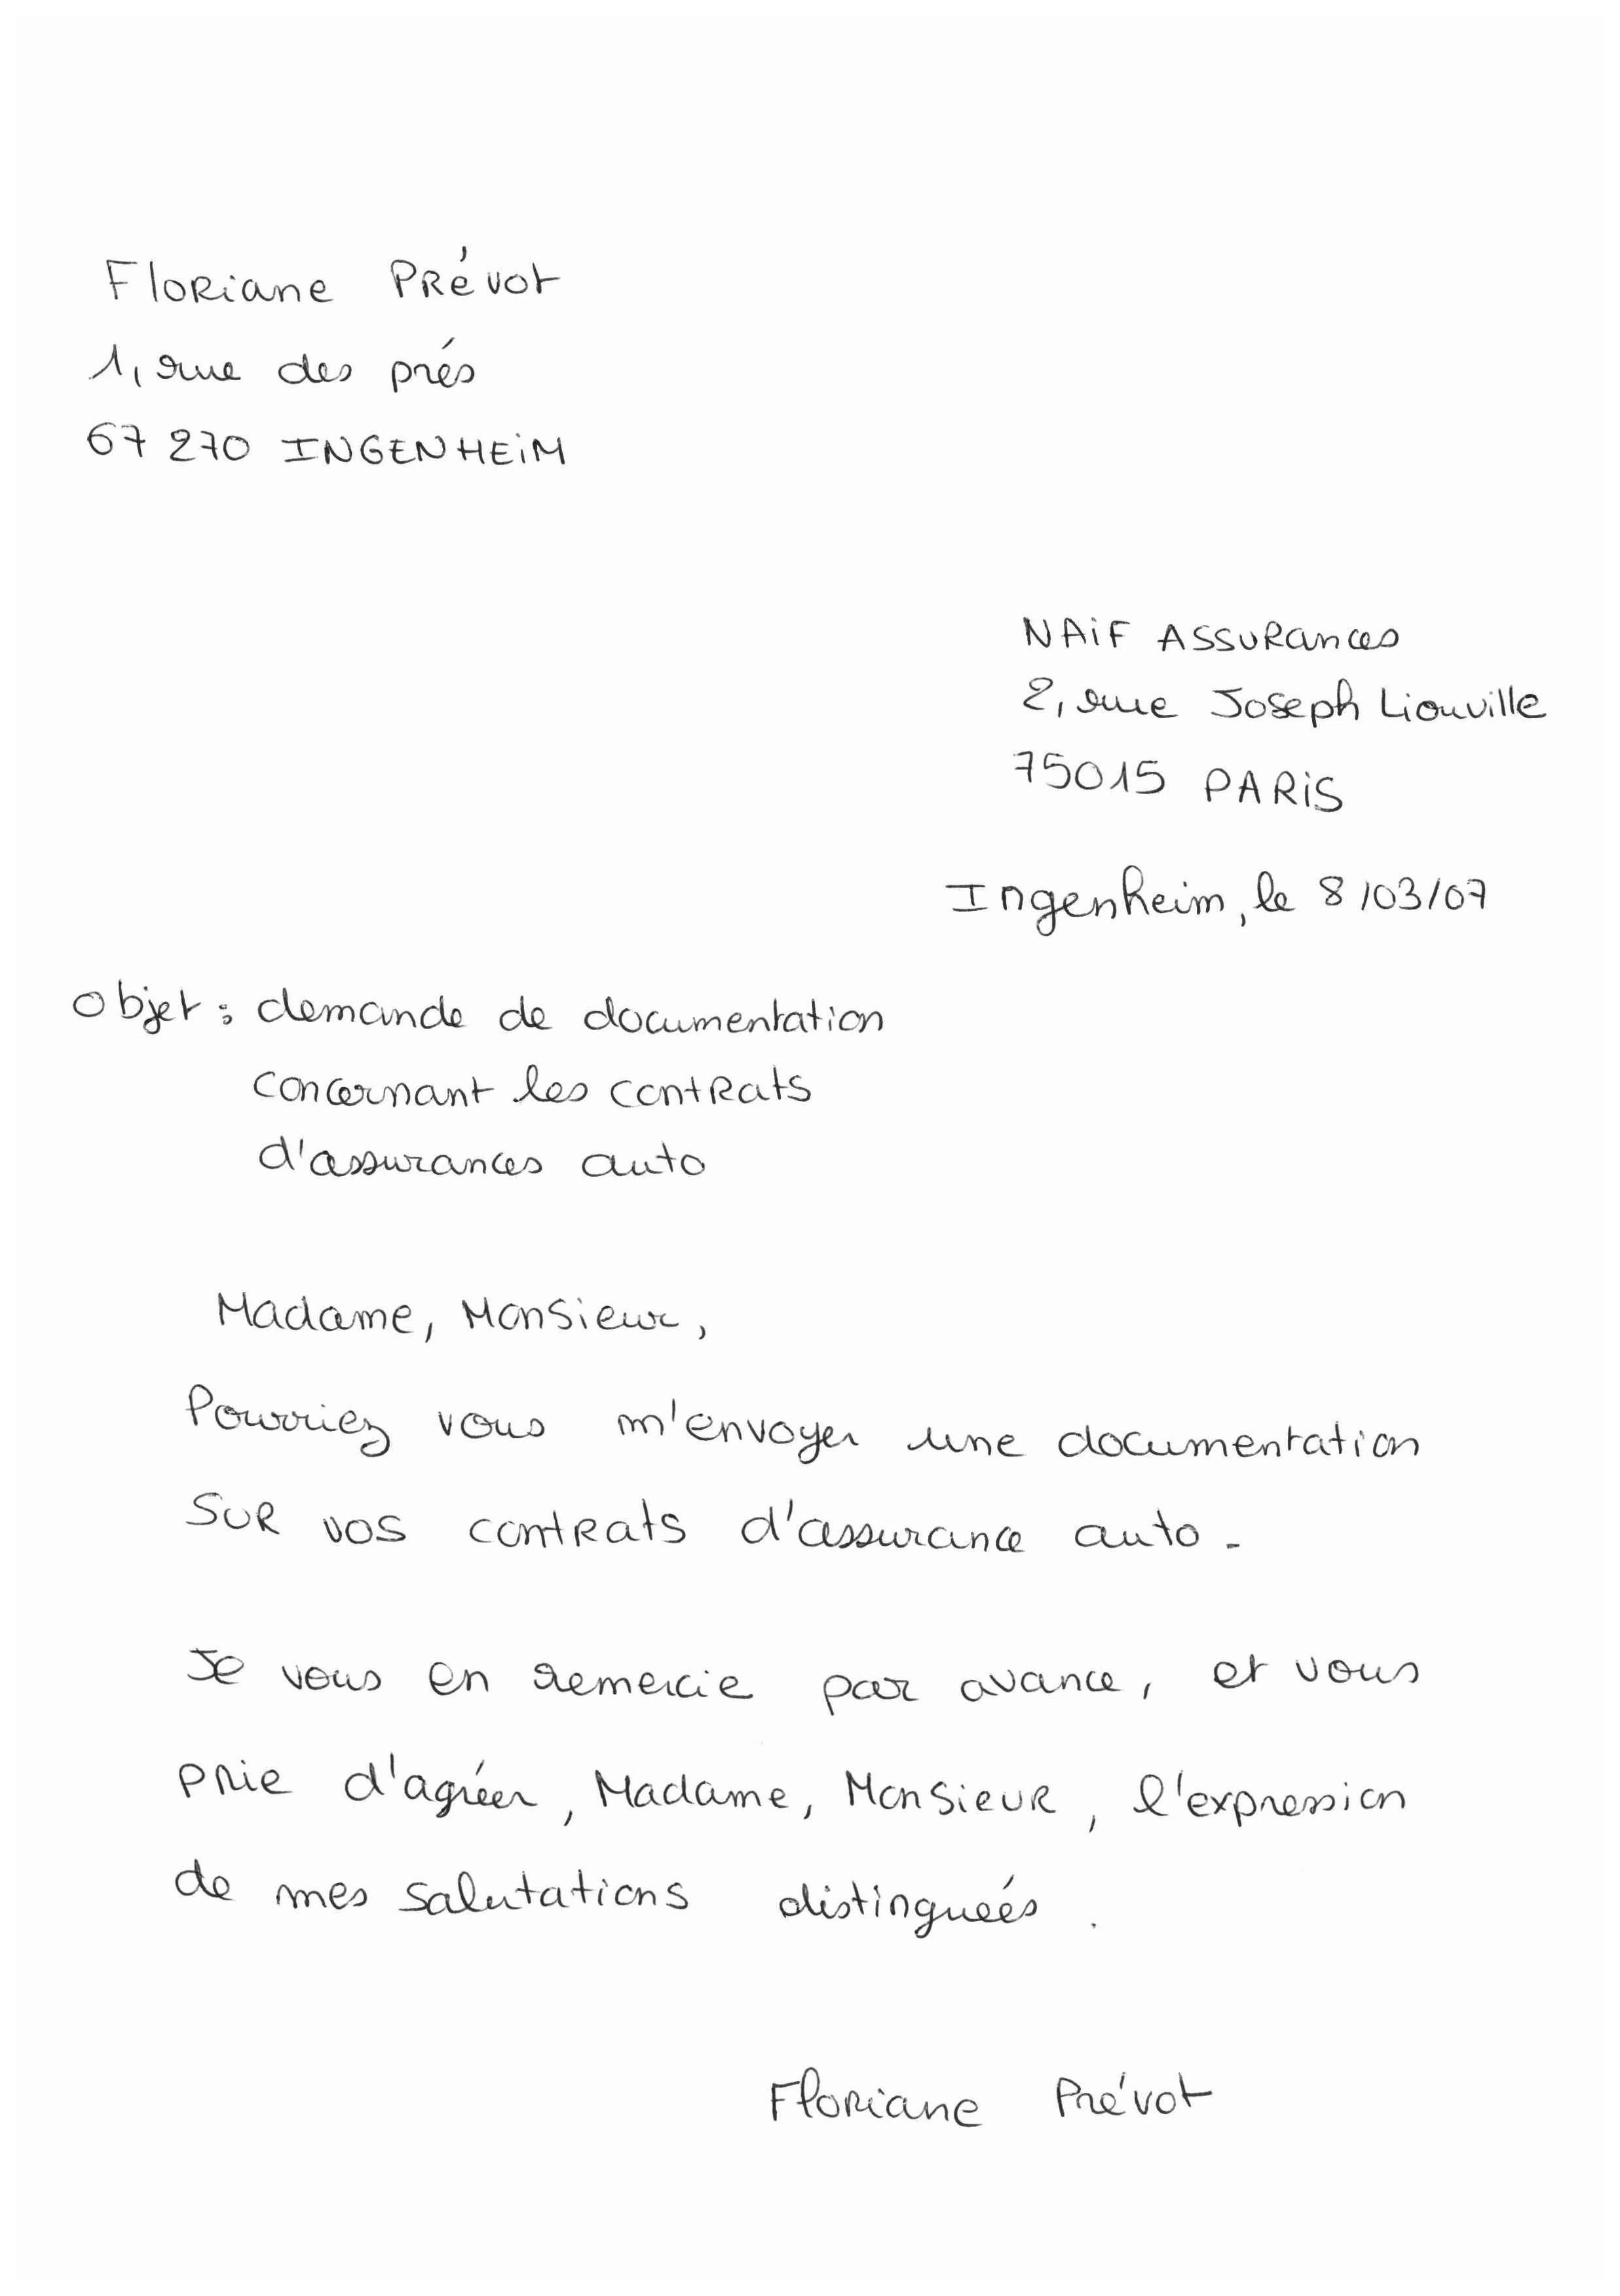 Floriane Prévot
1, rue des prés
67 270 INGENHEiM
NAiF ASSURances
2, rue Joseph Liouville
75015 PARiS
Ingenheim, le 8/03/07
Objet : demande de documentation
concernant les contrats
d'assurances auto
Madame, Monsieur,
Pourriez vous m'envoyer une documentation
sur vos contrats d'assurance auto.
Je vous en remercie par avance, et vous
prie d'agréer, Madame, Monsieur, l'expression
de mes salutations distinguées.
Floriane Prévot